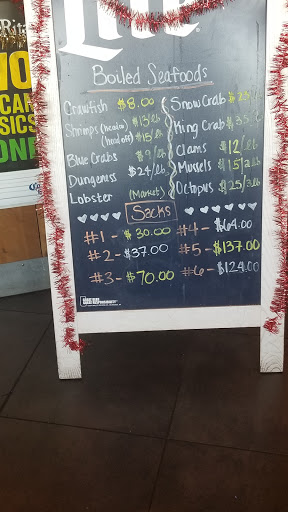 Lite
Boiled Seafoods
Crawfish $8.00
Shrimps (head on) $13/lb
(head off) $15/lb
Blue Crabs $9/lb
Dungeness $24/lb
Lobster (Market)
Snow Crab
King Crab $35
Clams $12/lb
Mussels $15/2lb
Octopus $25/3lb
Sacks
#1 - $30.00
#2 - $37.00
#3 - $70.00
#4 - $64.00
#5 - $137.00
#6 - $124.00
Rita